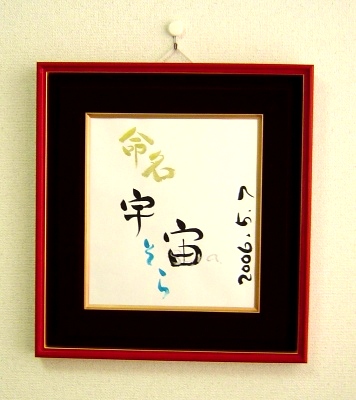 命名
宇宙
そら
2006.5.7